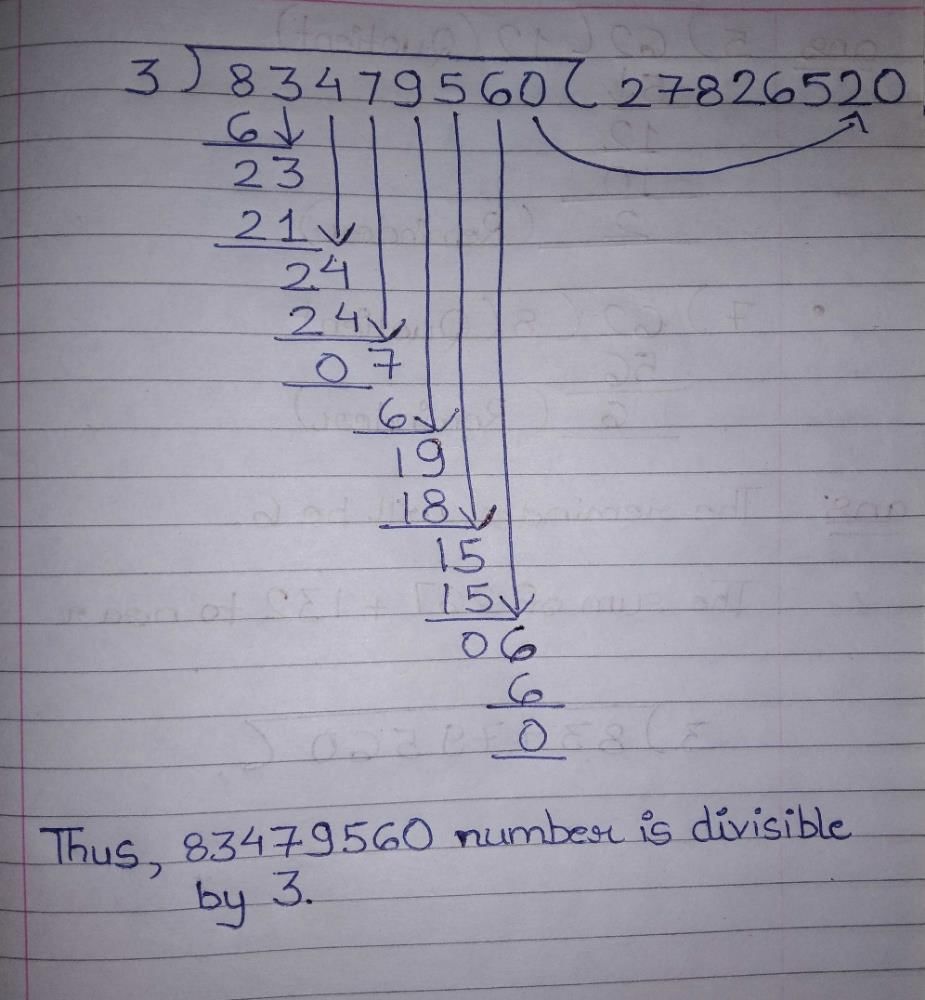 3) 83479560 ( 27826520
6
23
21
24
24
07
6
19
18
15
15
06
6
0
Thus, 83479560 number is divisible
by 3.